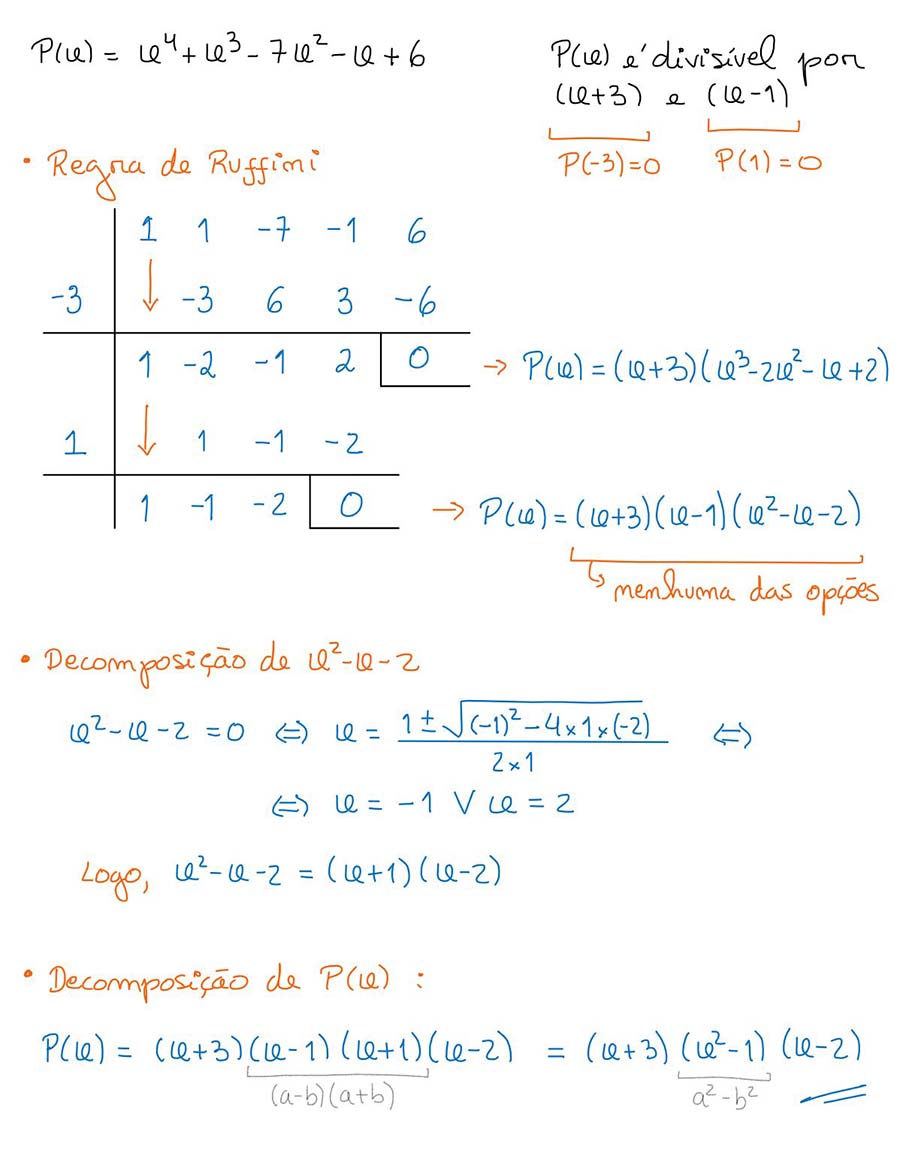 P(x) = x⁴ + x³ - 7x² - x + 6
P(x) é divisível por
(x+3) e (x-1)
P(-3)=0 P(1)=0
• Regra de Ruffini
1 1 -7 -1 6
-3 ↓ -3 6 3 -6
1 -2 -1 2 0 → P(x) = (x+3)(x³-2x²-x+2)
1 ↓ 1 -1 -2
1 -1 -2 0 → P(x) = (x+3)(x-1)(x²-x-2)
↳ nenhuma das opções
• Decomposição de x²-x-2
x²-x-2 = 0 ⇔ x = (1 ± √((-1)² - 4×1×(-2))) / (2×1) ⇔
⇔ x = -1 ∨ x = 2
Logo, x²-x-2 = (x+1)(x-2)
• Decomposição de P(x) :
P(x) = (x+3)(x-1)(x+1)(x-2) = (x+3)(x²-1)(x-2)
(a-b)(a+b) a²-b²